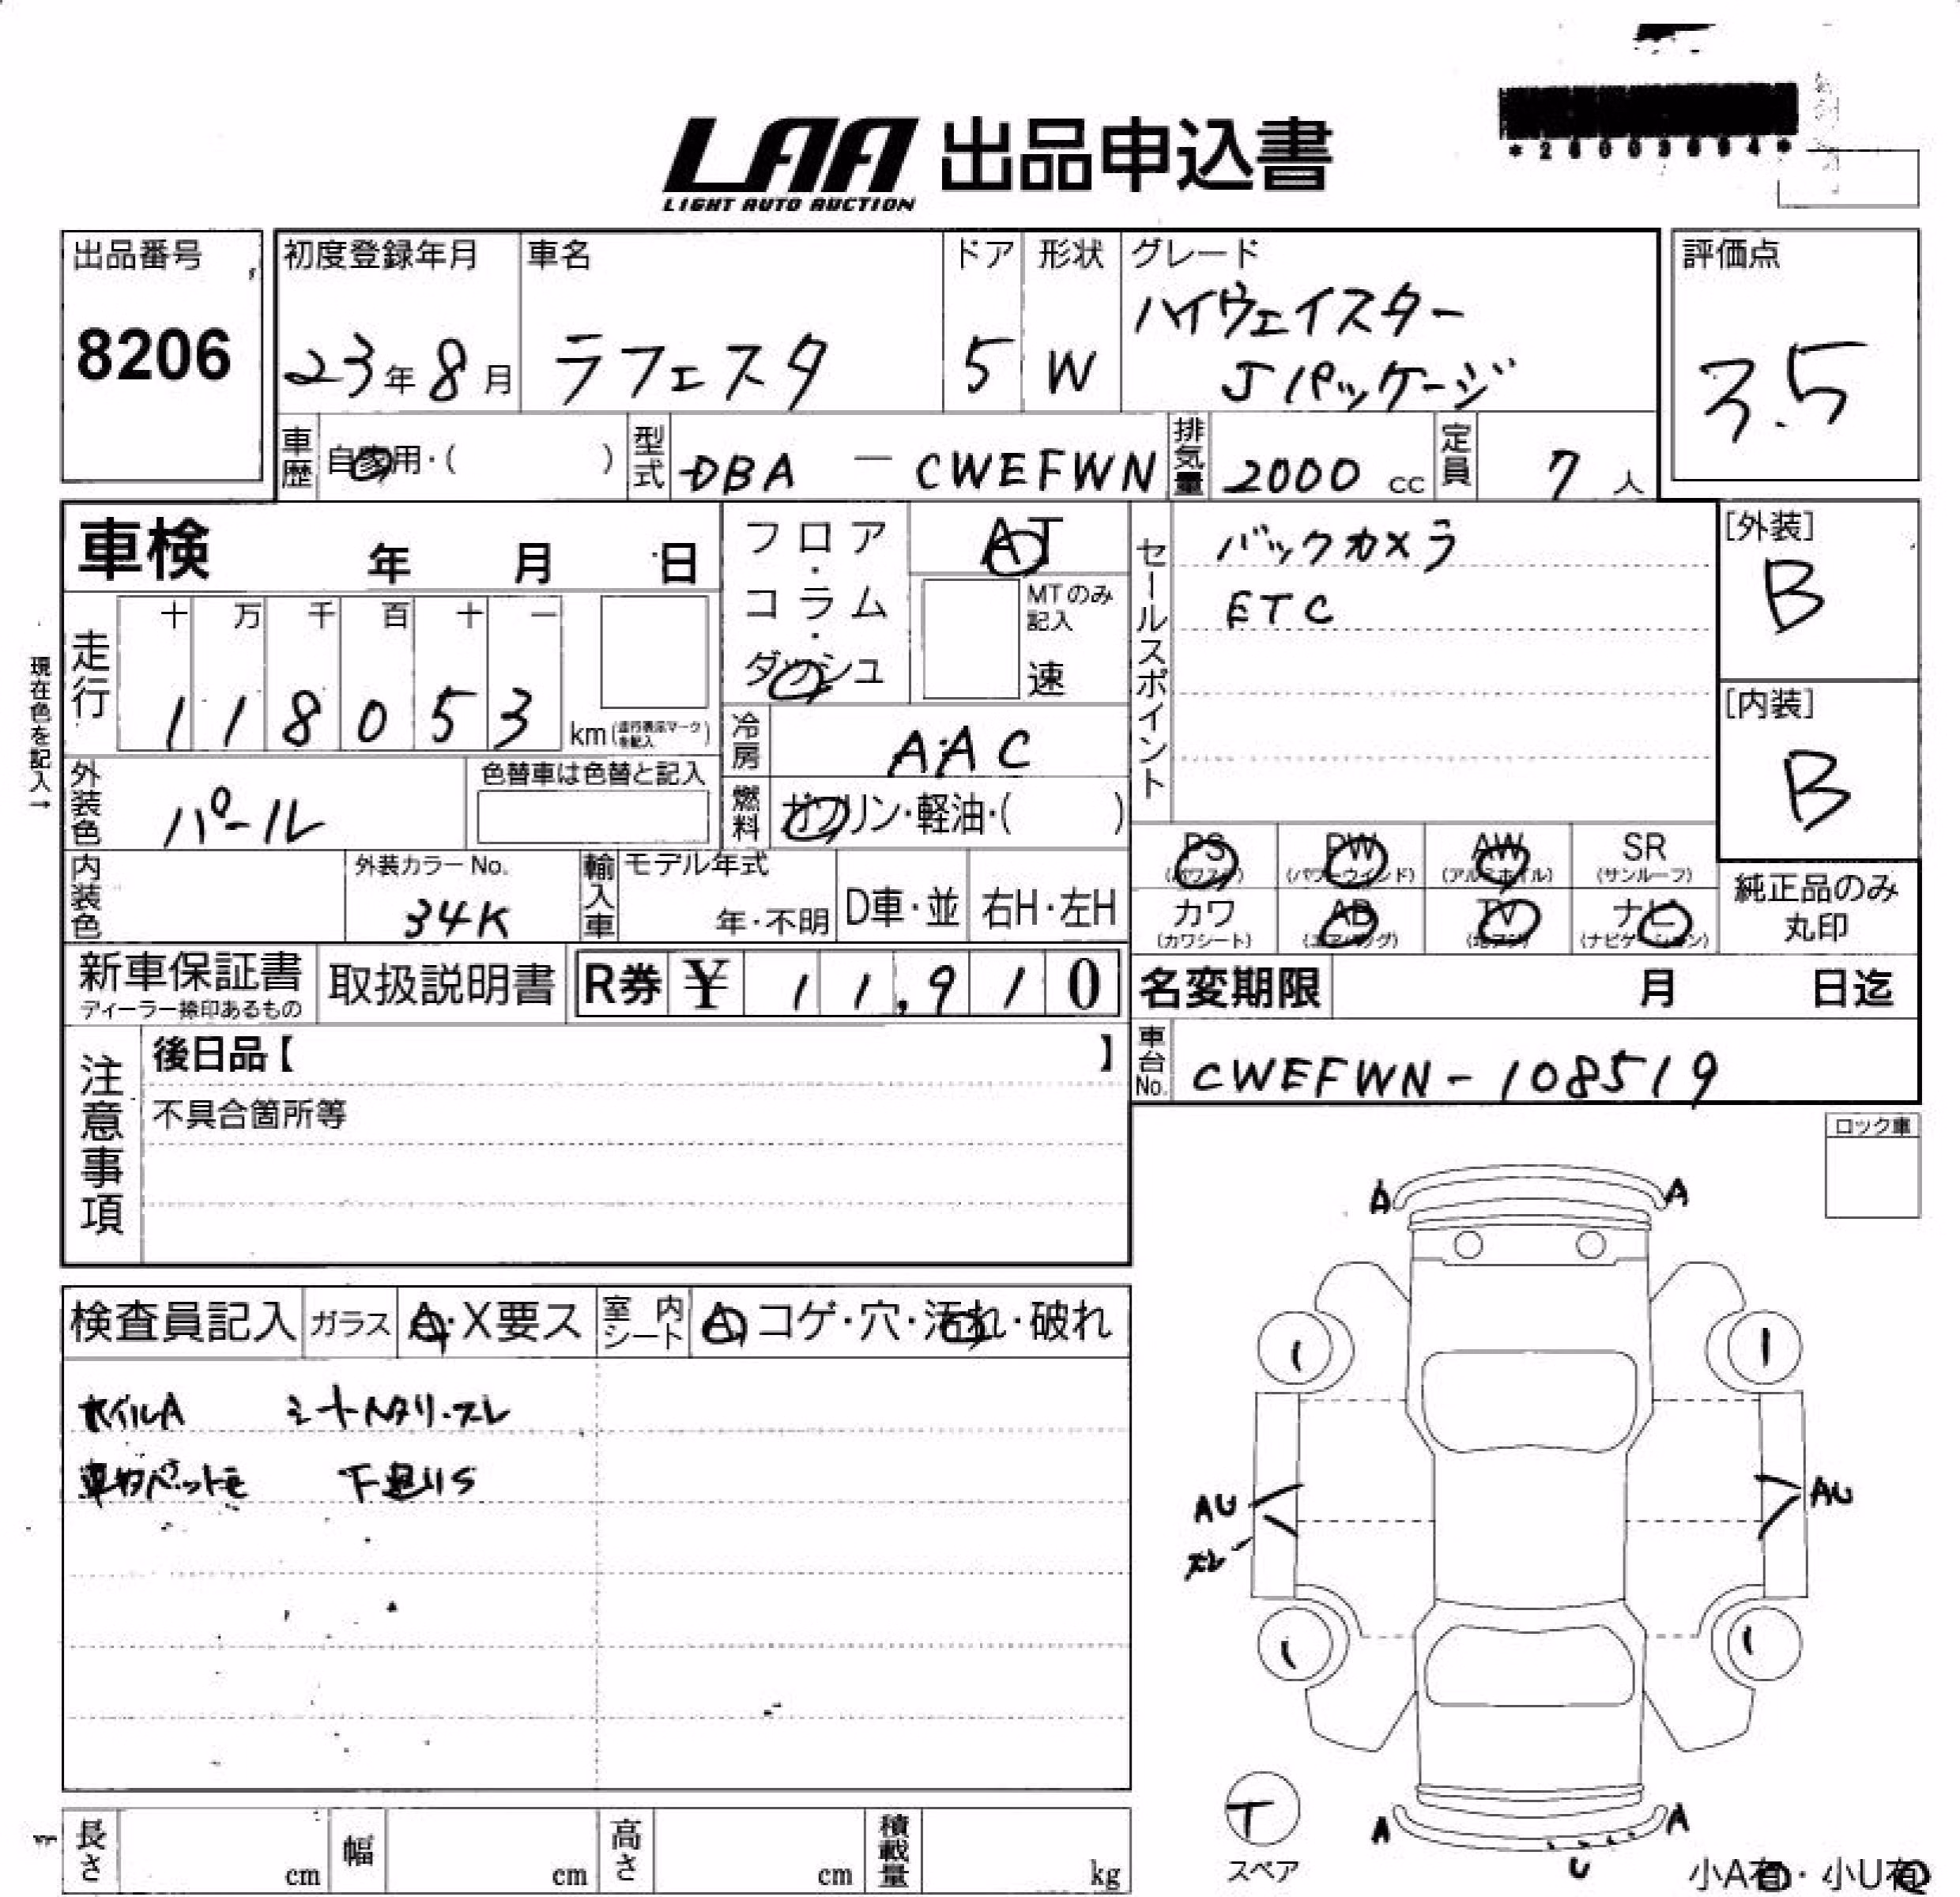 LAA 出品申込書
LIGHT AUTO AUCTION
出品番号
8206
初度登録年月
23年8月
車名
ラフェスタ
ドア
5
形状
W
グレード
ハイウェイスター
Jパッケージ
評価点
3.5
車歴
自家用・( )
型式
DBA － CWEFWN
排気量
2000 cc
定員
7 人
車検 年 月 日
フロア・コラム・ダッシュ
AT
MTのみ記入
速
セールスポイント
バックカメラ
ETC
[外装]
B
[内装]
B
現在色を記入→
走行
十 万 千 百 十 一
1 1 8 0 5 3
km(走行表示マークを記入)
冷房
AAC
外装色
パール
色替車は色替と記入
燃料
ガソリン・軽油・( )
内装色
外装カラーNo.
34K
輸入車
モデル年式
年・不明
D車・並
右H・左H
PS
(パワステ)
PW
(パワーウインド)
AW
(アルミホイル)
SR
(サンルーフ)
カワ
(カワシート)
AB
(エアバッグ)
TV
ナビ
(ナビゲーション)
純正品のみ
丸印
新車保証書
ディーラー捺印あるもの
取扱説明書
R券 ¥ 11,910
名変期限 月 日迄
車台No.
CWEFWN-108519
注意事項
後日品【 】
不具合箇所等
ロック車
検査員記入
ガラス
A・X要ス
室内シート
A・コゲ・穴・汚れ・破れ
ホイルA
ヘタリ・スレ
A A
1 1
AU AU
スレ
1 1
T
スペア
A A
U
小A有・小U有
長さ cm
幅 cm
高さ cm
積載量 kg